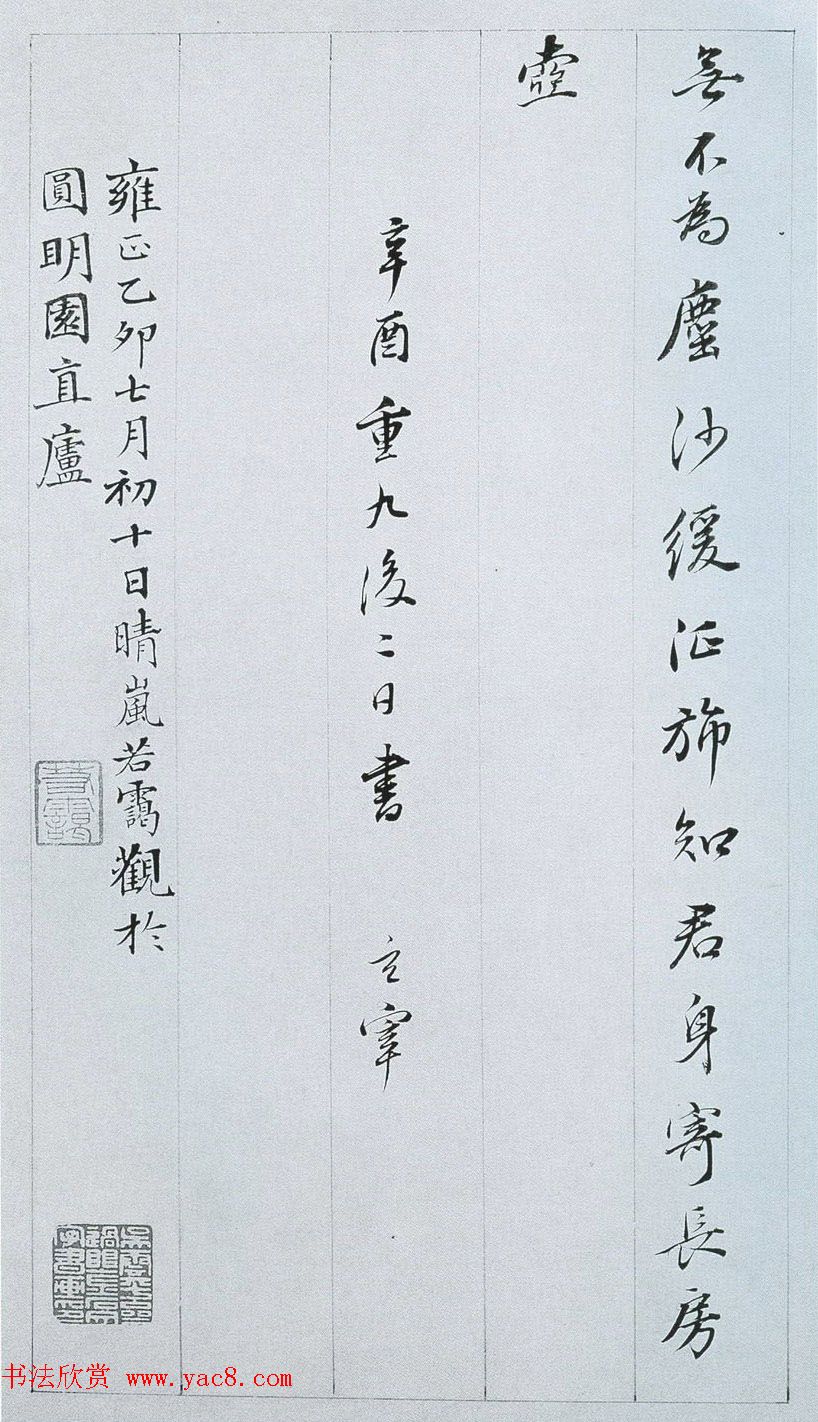 無不為塵沙緩征旆知君身寄長房
壺
辛酉重九後二日書 立宰
雍正乙卯七月初十日晴嵐若靄觀於
圓明園直廬
若靄
书法欣赏 www.yac8.com